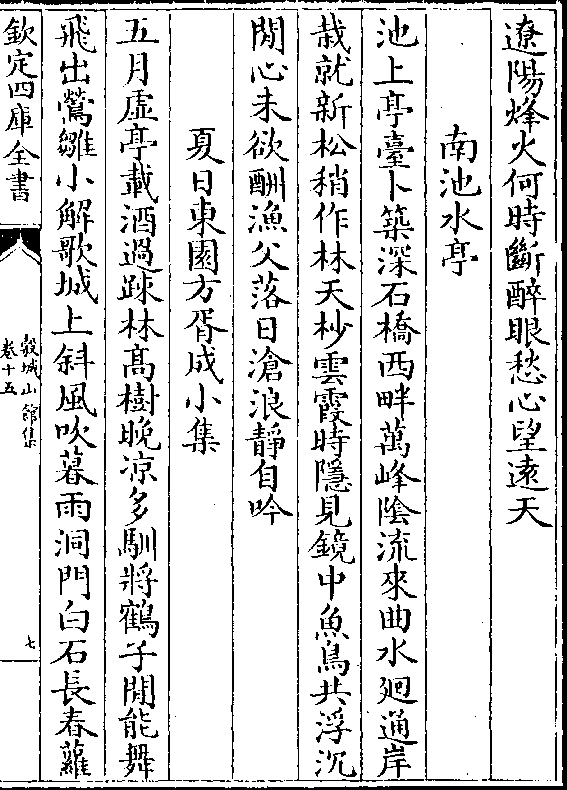 遼陽烽火何時斷醉眼愁心望遠天
南池水亭
池上亭臺卜築深石橋西畔萬峰陰流來曲水廻通岸
栽就新松稍作林天杪雲霞時隱見鏡中魚鳥共浮沉
閒心未欲酬漁父落日滄浪靜自吟
夏日東園方胥成小集
五月虛亭載酒過踈林高樹晚凉多馴將鶴子閒能舞
飛出鶯雛小解歌城上斜風吹暮雨洞門白石長春蘿
欽定四庫全書
穀城山館集
卷十五
七